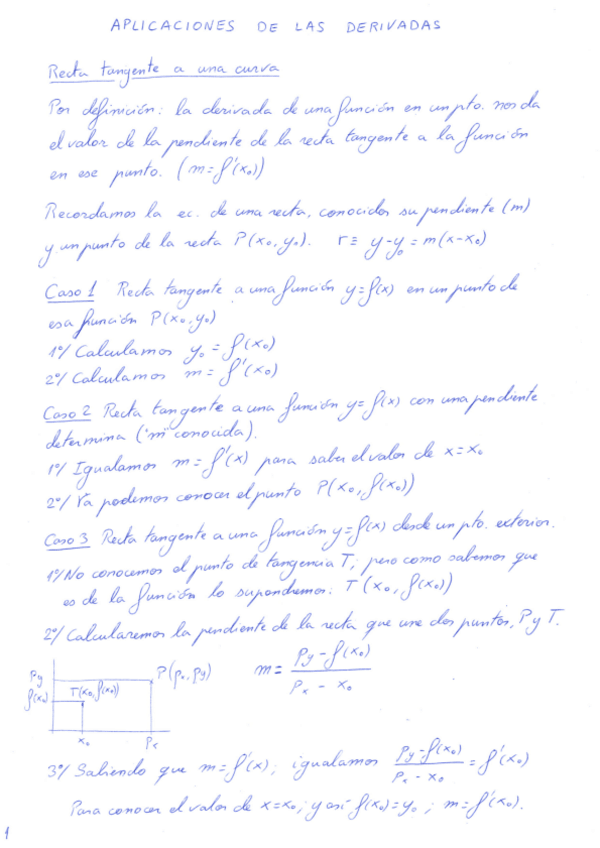 APLICACIONES DE LAS DERIVADAS
Recta tangente a una curva
Por definición: la derivada de una función en un pto. nos da
el valor de la pendiente de la recta tangente a la función
en ese punto. (m=f'(x₀))
Recordamos la ec. de una recta, conocidos su pendiente (m)
y un punto de la recta P(x₀,y₀). r≡ y-y₀=m(x-x₀)
Caso 1 Recta tangente a una función y=f(x) en un punto de
esa función P(x₀,y₀)
1º/ Calculamos y₀ = f(x₀)
2º/ Calculamos m = f'(x₀)
Caso 2 Recta tangente a una función y=f(x) con una pendiente
determina ("m" conocida).
1º/ Igualamos m=f'(x) para saber el valor de x=x₀
2º/ Ya podemos conocer el punto P(x₀,f(x₀))
Caso 3 Recta tangente a una función y=f(x) desde un pto. exterior.
1º/ No conocemos el punto de tangencia T; pero como sabemos que
es de la función lo supondremos: T(x₀,f(x₀))
2º/ Calcularemos la pendiente de la recta que une dos puntos, P y T.
Py P(pₓ,py) m = (py-f(x₀))/(pₓ-x₀)
f(x₀) T(x₀,f(x₀))
x₀ pₓ
3º/ Sabiendo que m=f'(x); igualamos (py-f(x₀))/(pₓ-x₀) = f'(x₀)
Para conocer el valor de x=x₀; y así f(x₀)=y₀; m=f'(x₀).
1